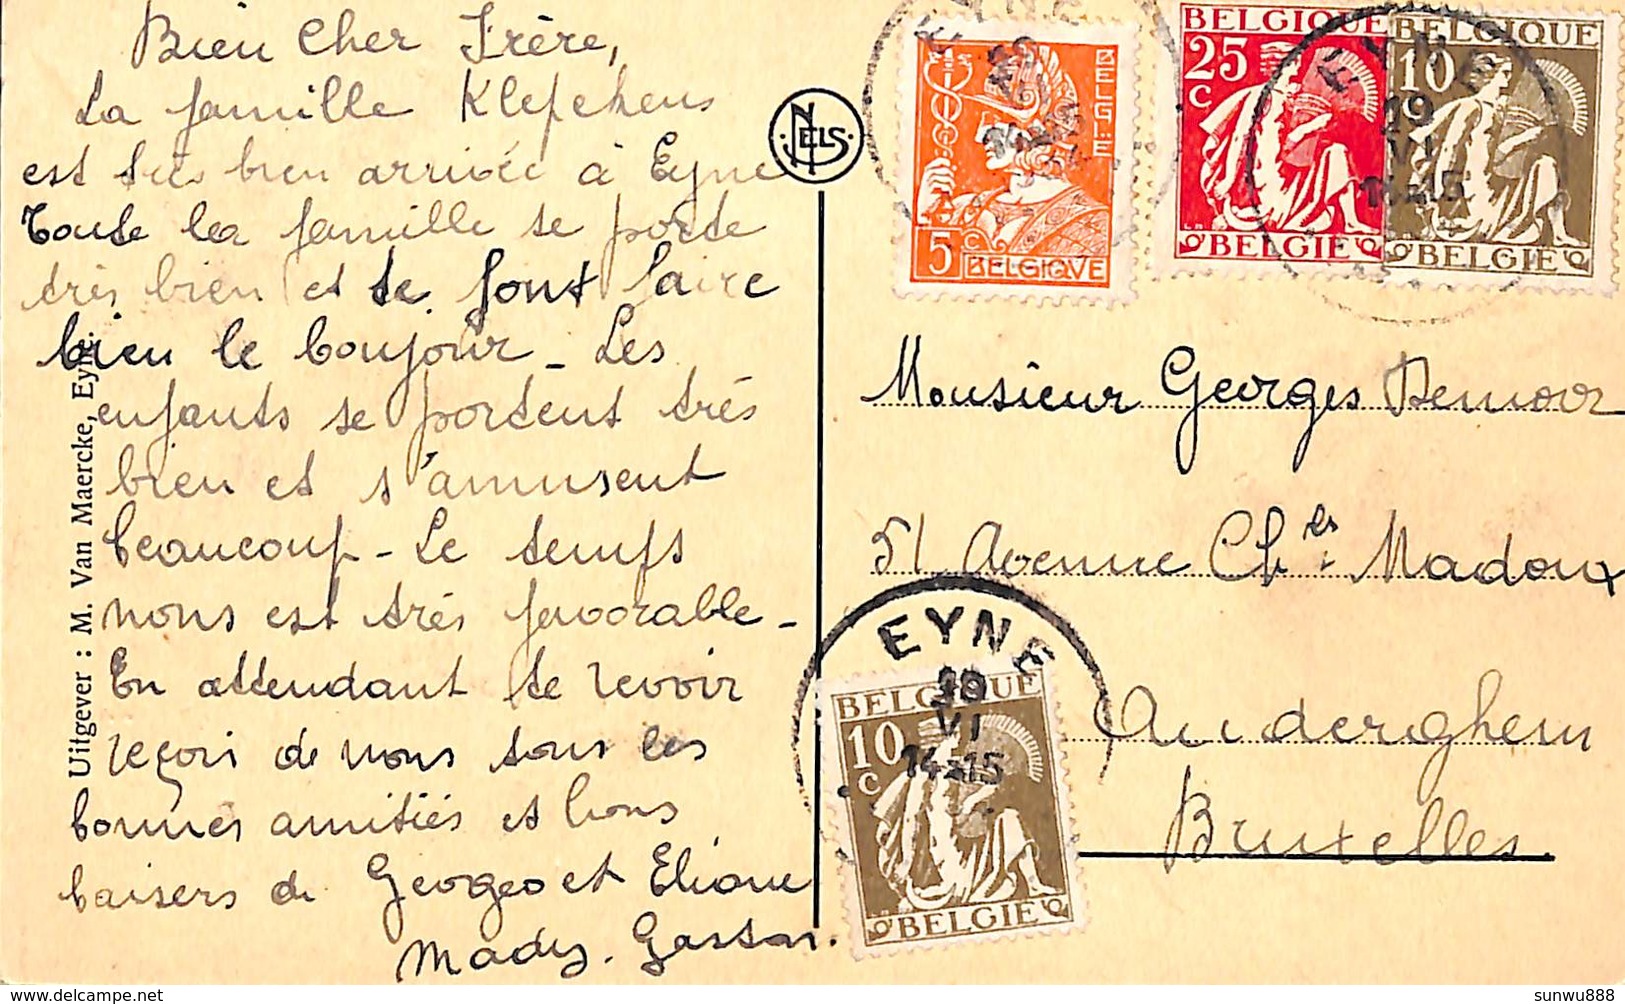 Bien Cher Frère,
La famille Klefckens
est très bien arrivée à Eyne
Toute la famille se porte
très bien et te font faire
bien le bonjour - Les
enfants se portent très
bien et s'amusent
beaucoup - Le temps
nous est très favorable -
En attendant te revoir
reçois de nous tous les
bonnes amitiés et bons
baisers de Georges et Eliane
Mady. Gaston.
Uitgever : M. Van Maercke, Eyne.
NELS
BELGIE
5 C
BELGIQUE
BELGIQUE
25 C
BELGIE
BELGIQUE
10
BELGIE
EYNE
EYNE
19
VI
14-15
Monsieur Georges Demoor
51 Avenue Chles Madoux
Auderghem
Bruxelles.
EYNE
19
VI
14-15
BELGIQUE
10 C
BELGIE
sunwu888